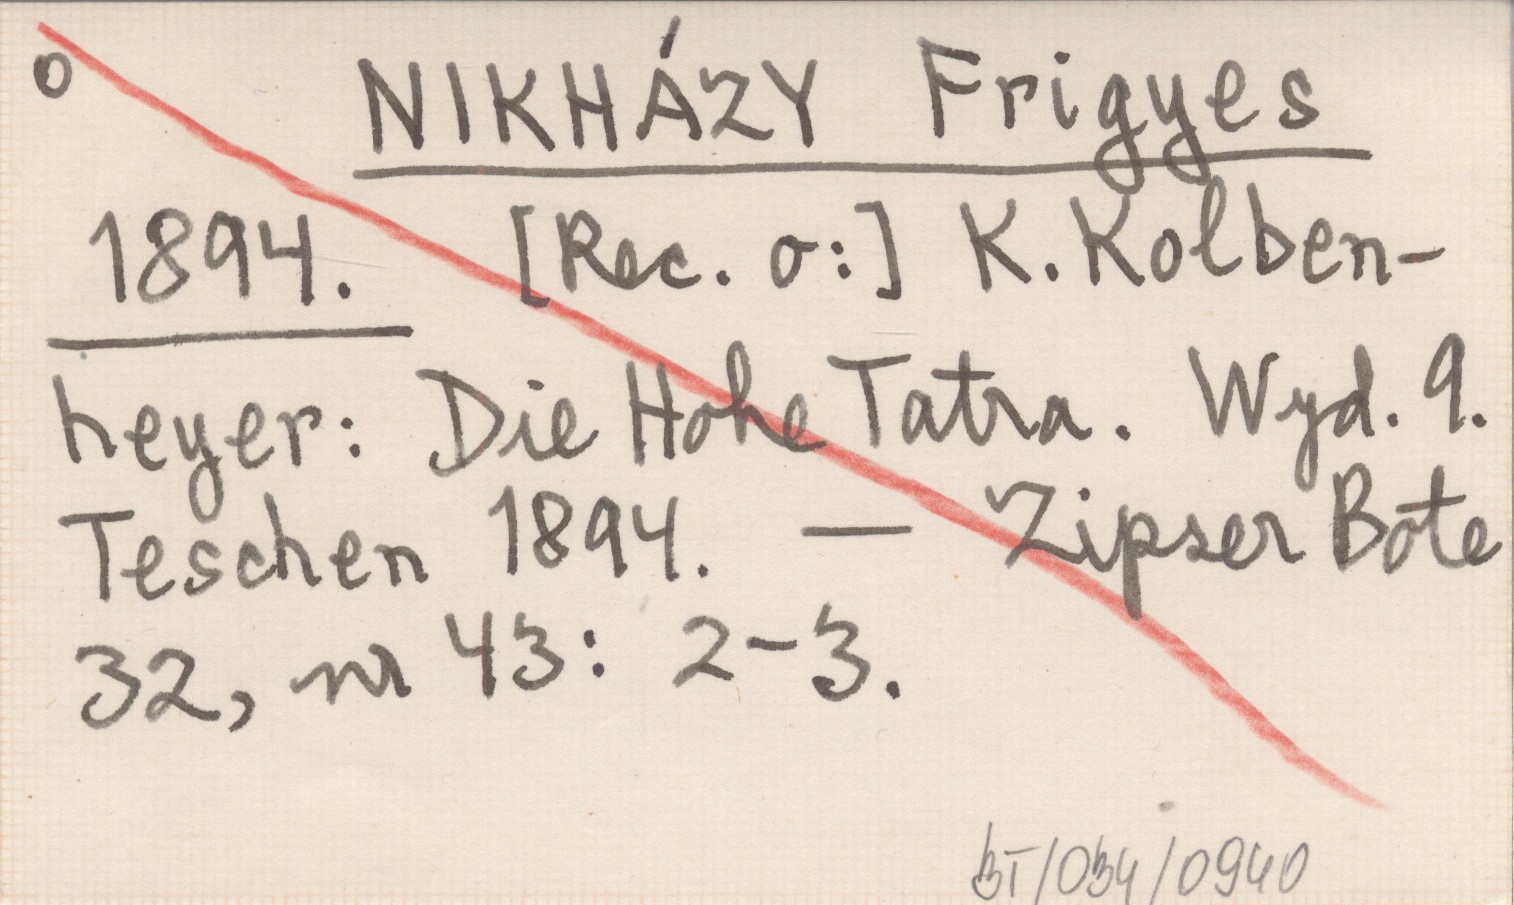 O NIKHÁZY Frigyes
1894. [Rec. o:] K. Kolben-
heyer: Die Hohe Tatra. Wyd. 9.
Teschen 1894. — Zipser Bote
32, nr 43: 2-3.
BT/034/0940